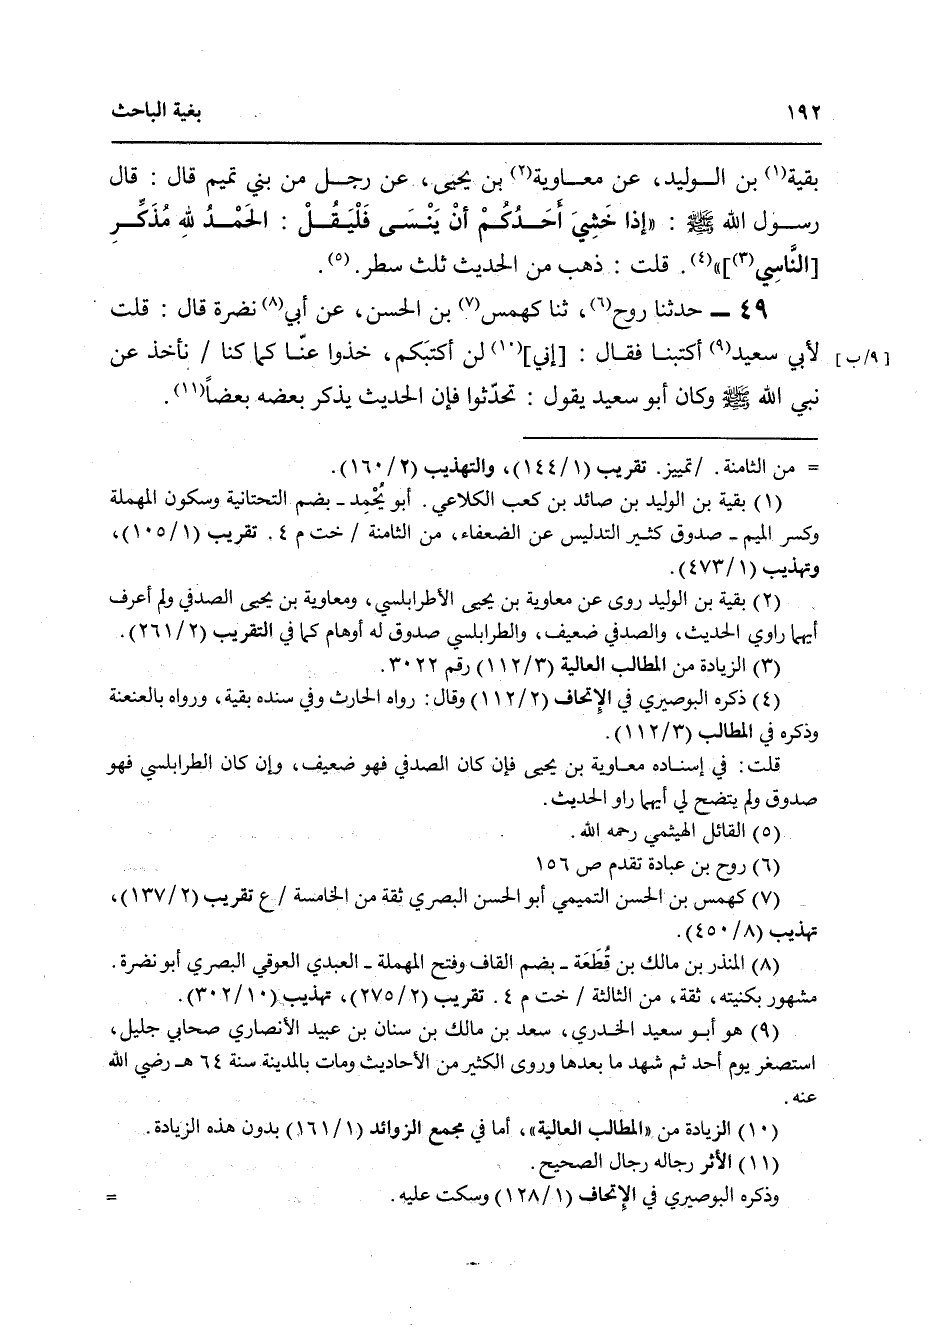 ١٩٢ بغية الباحث
بقية(١) بن الوليد، عن معاوية(٢) بن يحيى، عن رجل من بني تميم قال : قال
رسول الله ﷺ : «إذا خَشِيَ أَحَدُكُمْ أنْ يَنْسَى فَلْيَقُلْ : الحَمْدُ للهِ مُذَكِّرِ
[النَّاسِي(٣)]»(٤). قلت : ذهب من الحديث ثلث سطر.(٥).
٤٩ ــ حدثنا روح(٦)، ثنا كهمس(٧) بن الحسن، عن أبي(٨) نضرة قال : قلت
لأبي سعيد(٩) أكتبنا فقال : [إني](١٠) لن أكتبَكم، خذوا عنّا كما كنا / نأخذ عن [٩/ب]
نبي الله ﷺ وكان أبو سعيد يقول : تحدّثوا فإن الحديث يذكر بعضه بعضاً(١١).
= من الثامنة. /تمييز. تقريب (١٤٤/١)، والتهذيب (١٦٠/٢).
(١) بقية بن الوليد بن صائد بن كعب الكلاعي. أبو يُحْمِد ـ بضم التحتانية وسكون المهملة
وكسر الميم ـ صدوق كثير التدليس عن الضعفاء، من الثامنة / خت م ٤. تقريب (١٠٥/١)،
وتهذيب (٤٧٣/١).
(٢) بقية بن الوليد روى عن معاوية بن يحيى الأطرابلسي، ومعاوية بن يحيى الصدفي ولم أعرف
أيهما راوي الحديث، والصدفي ضعيف، والطرابلسي صدوق له أوهام كما في التقريب (٢٦١/٢).
(٣) الزيادة من المطالب العالية (١١٢/٣) رقم ٣٠٢٢.
(٤) ذكره البوصيري في الإتحاف (١١٢/٢) وقال: رواه الحارث وفي سنده بقية، ورواه بالعنعنة
وذكره في المطالب (١١٢/٣).
قلت: في إسناده معاوية بن يحيى فإن كان الصدفي فهو ضعيف، وإن كان الطرابلسي فهو
صدوق ولم يتضح لي أيهما راو الحديث.
(٥) القائل الهيثمي رحمه الله.
(٦) روح بن عبادة تقدم ص ١٥٦
(٧) كهمس بن الحسن التميمي أبو الحسن البصري ثقة من الخامسة /ع تقريب (١٣٧/٢)،
تهذيب (٤٥٠/٨).
(٨) المنذر بن مالك بن قُطَعَة ـ بضم القاف وفتح المهملة ـ العبدي العوقي البصري أبو نضرة.
مشهور بكنيته، ثقة، من الثالثة / خت م ٤. تقريب (٢٧٥/٢)، تهذيب (٣٠٢/١٠).
(٩) هو أبو سعيد الخدري، سعد بن مالك بن سنان بن عبيد الأنصاري صحابي جليل،
استصغر يوم أحد ثم شهد ما بعدها وروى الكثير من الأحاديث ومات بالمدينة سنة ٦٤ هـ رضي الله
عنه.
(١٠) الزيادة من «المطالب العالية»، أما في مجمع الزوائد (١٦١/١) بدون هذه الزيادة.
(١١) الأثر رجاله رجال الصحيح.
وذكره البوصيري في الإتحاف (١٢٨/١) وسكت عليه. =